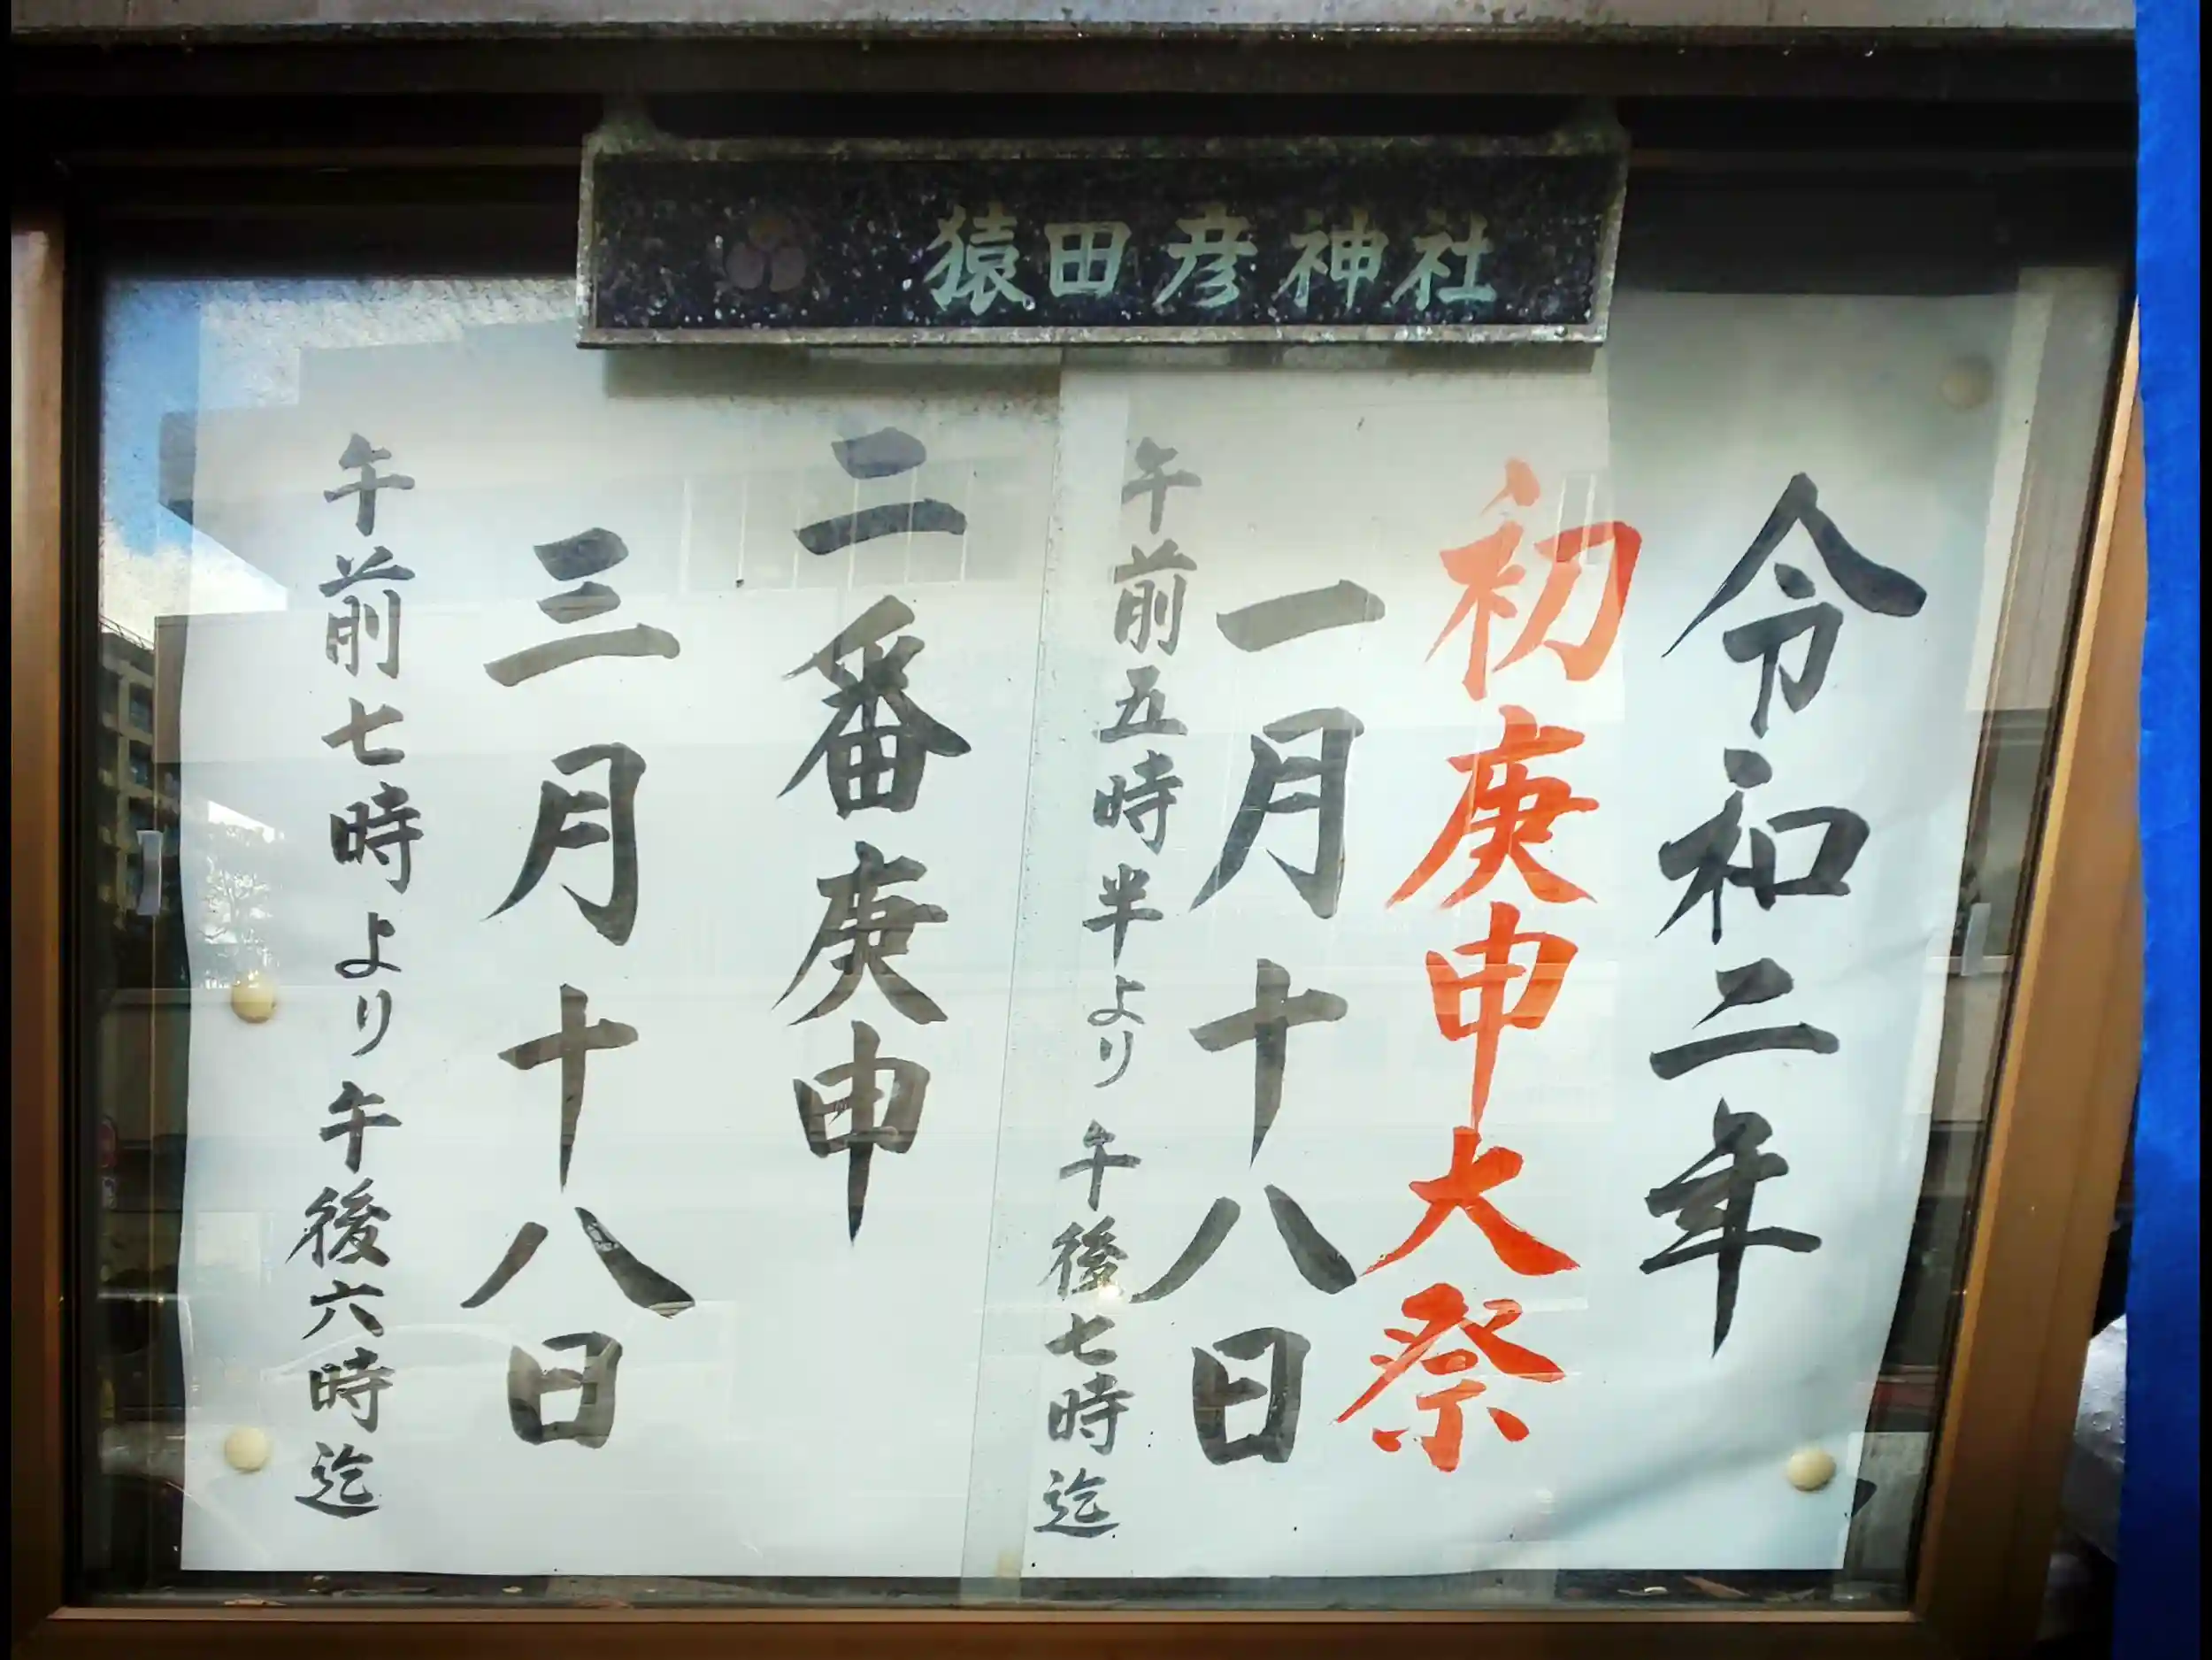 猿田彦神社
令和二年
初庚申大祭
一月十八日
午前五時半より 午後七時迄
二番庚申
三月十八日
午前七時より午後六時迄